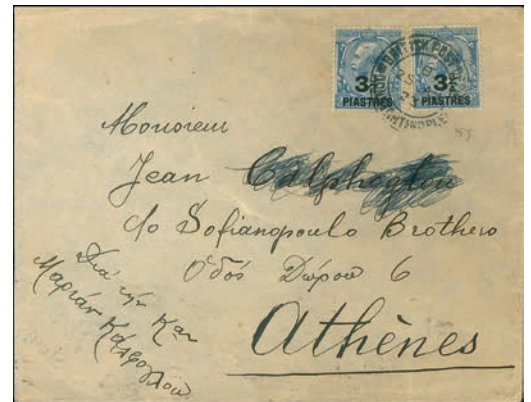 3¾ PIASTRES
3¾ PIASTRES
BRITISH POST
Monsieur
Jean Calphoglou
c/o Sofianopoulo Brothers
Ὁδός Δώρου 6
Athènes
Διά τήν Καν
Μαριάν Καλφόγλου